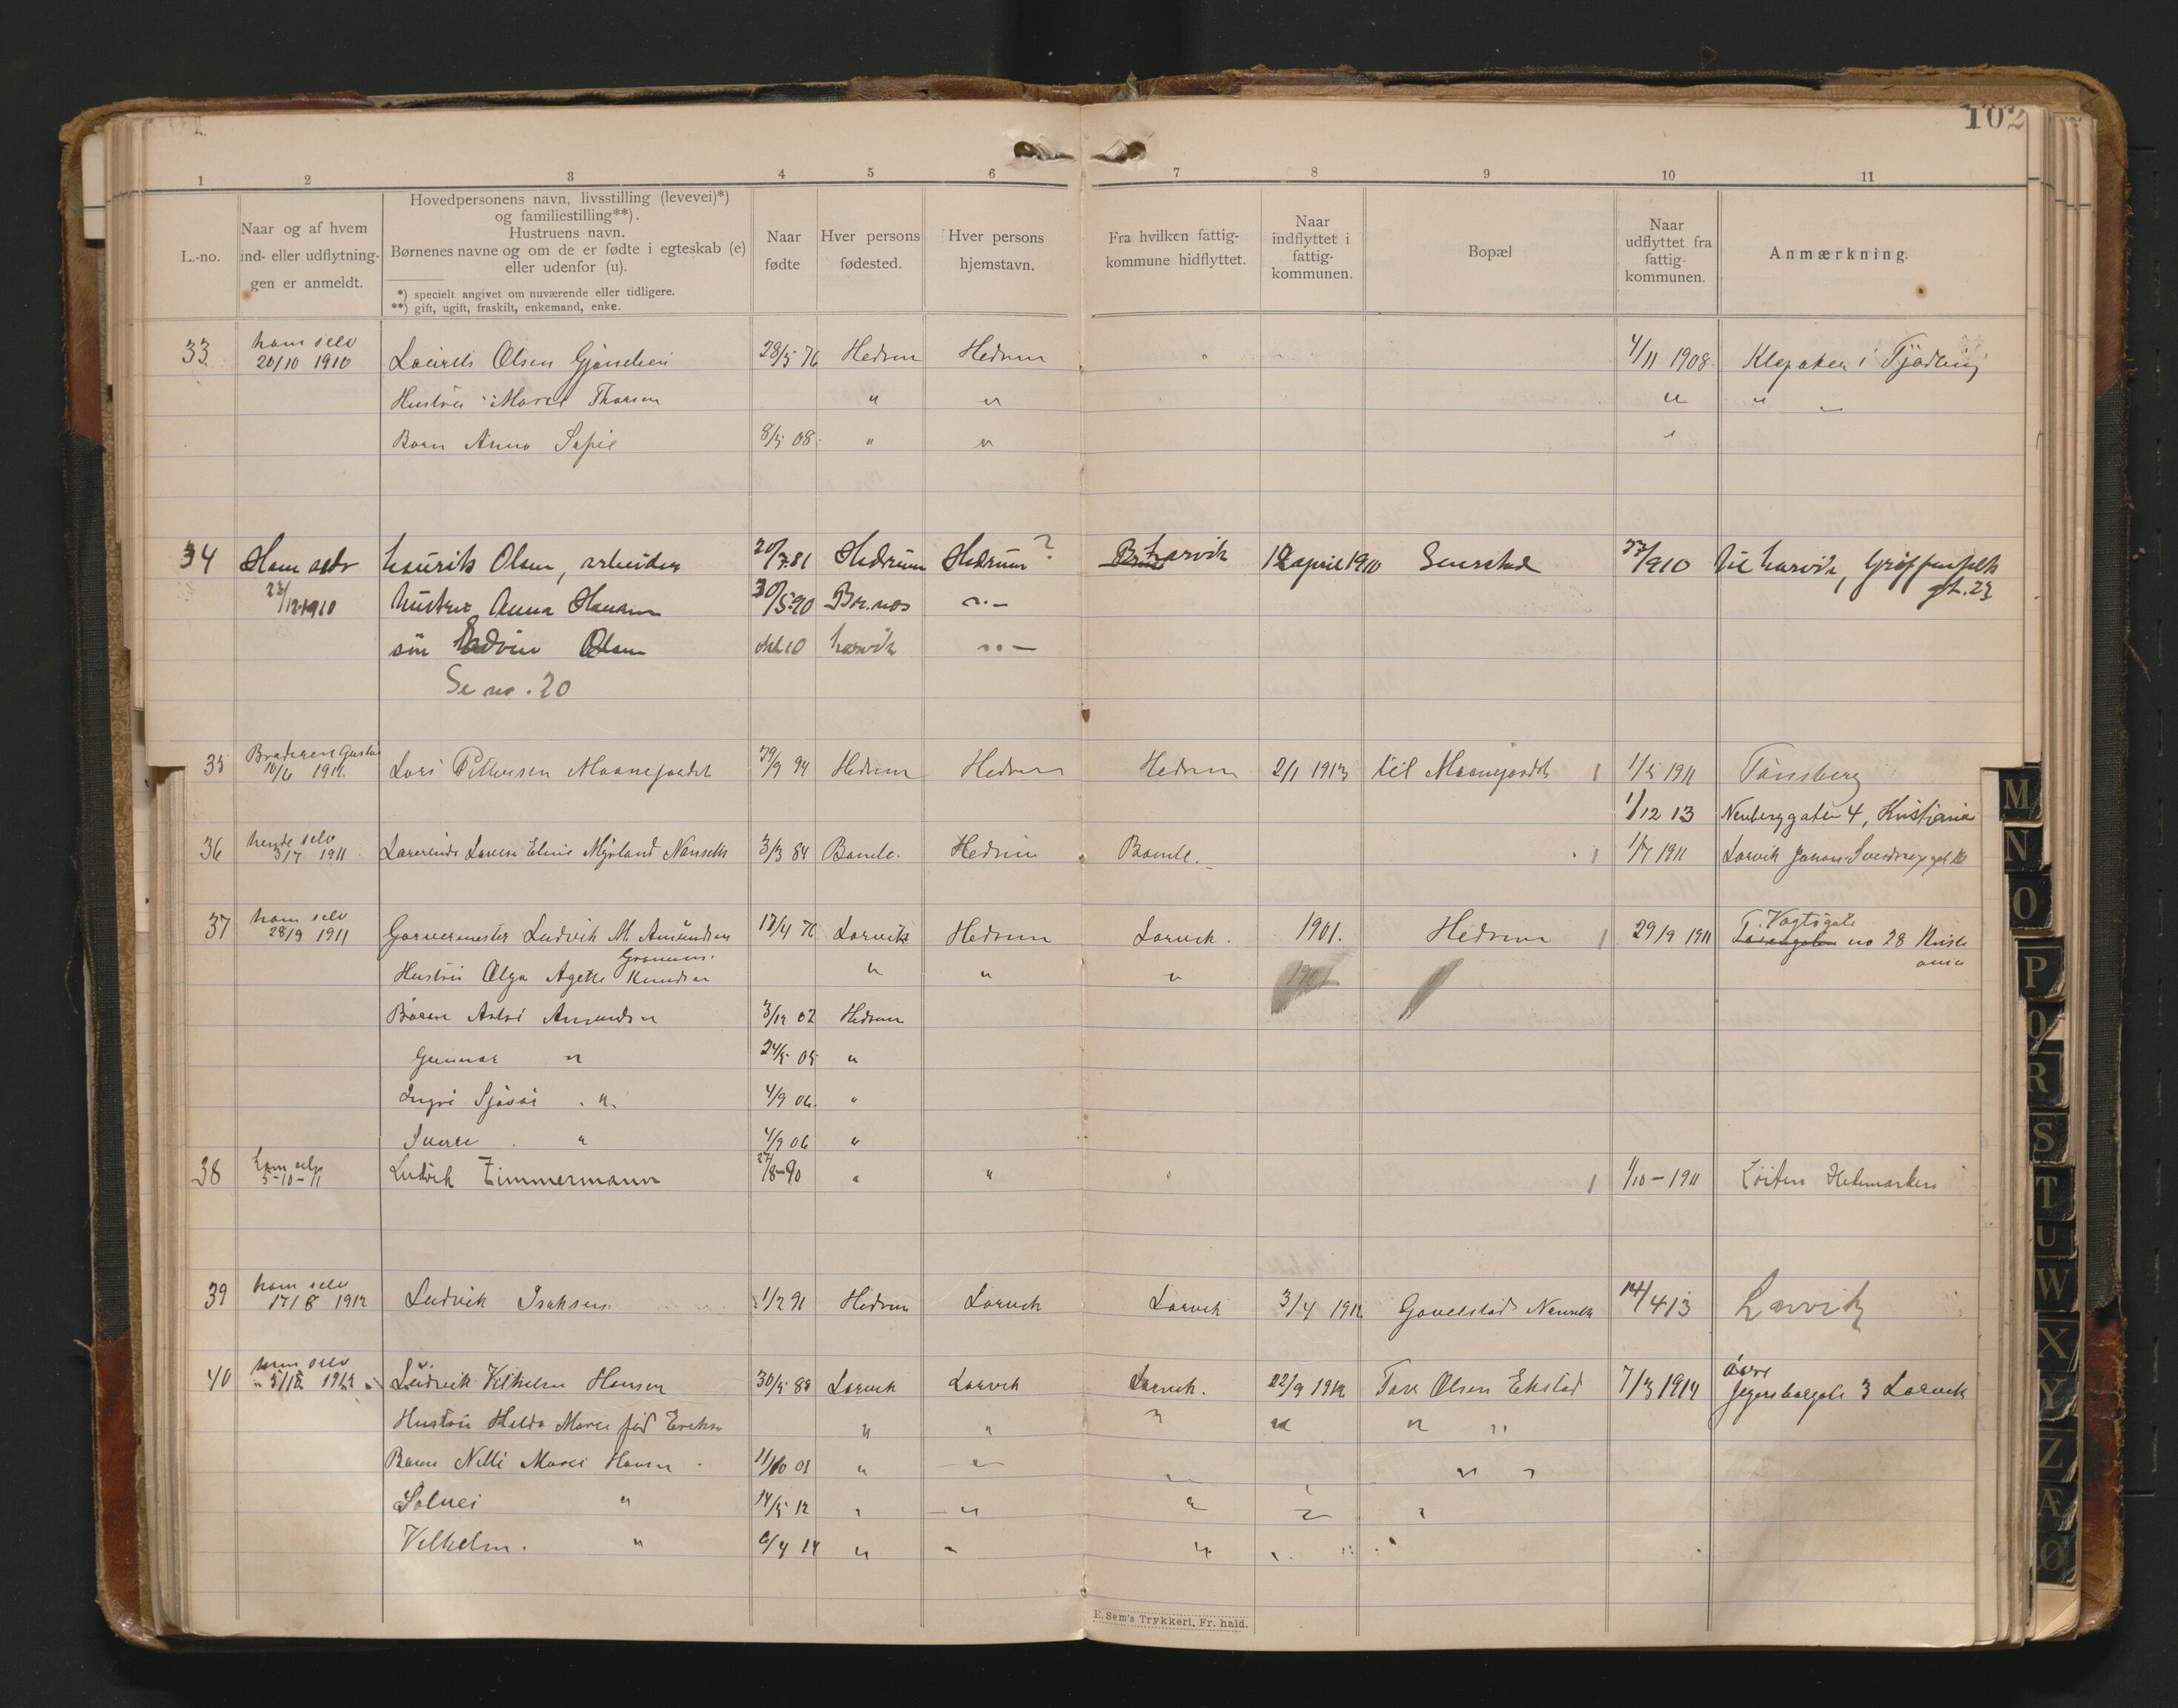 102
1 2 3 4 5 6 7 8 9 10 11
L.-no.
Naar og af hvem
ind- eller udflytnin-
gen er anmeldt.
Hovedpersonens navn, livsstilling (levevei)*)
og familiestilling**).
Hustruens navn.
Børnenes navne og om de er fødte i egteskab (e)
eller udenfor (u).
*) specielt angivet om nuværende eller tidligere.
**) gift, ugift, fraskilt, enkemand, enke.
Naar
fødte
Hver persons
fødested.
Hver persons
hjemstavn.
Fra hvilken fattig-
kommune hidflyttet.
Naar
indflyttet i
fattig-
kommunen.
Bopæl
Naar
udflyttet fra
fattig-
kommunen.
Anmærkning.
ham selv
33 20/10 1910 Olsen 28/5 76 Hedrum Hedrum 4/11 1908 i Tjødling
Hustru Marie Thorsen " " " " "
Barn Anna Sofie 8/5 08 " " "
34 Ham selv Laurits Olsen, arbeider 20/7 81 Hedrum Hedrum ? Larvik april 1910 910 til Larvik, Griffenfelts
gt. 23
23/12 1910 hustru Anna Hansen 30/5 90 " –
søn Edvin Olsen okt 10 Larvik " –
Se no. 20
Broderen Gustav
35 16/6 1911. Lars Pettersen 29/9 94 Hedrum Hedrum Hedrum 2/1 1913 til 1/5 1911 Tønsberg
1/12 13 Neuberggaten 4, Kristiania
hende selv
36 3/7 1911 Lærerinde Eline Myrland Nanset 3/3 84 Bamle. Hedrum Bamle. 1/7 1911 Larvik
ham selv
37 28/9 1911 Garvermester Ludvik M. Amundsen 17/4 76 Larvik Hedrum Larvik. 1901. Hedrum 29/9 1911 no 28 Kristi
ania
T. Vogtsgate
Hustru Olga Agethe Knudsen " " " 1901
Børn Amundsen 3/12 02 Hedrum
Gunnar " 24/5 05 "
" 4/9 06. "
Sverre " 4/9 06 "
ham selv
38 5-10-11 Ludvik Zimmermann 27/8-90 " " " 1/10-1911 Løiten Hedemarken
ham selv
39 17/8 1912 Ludvik Isaksen 1/2 91 Hedrum Larvik Larvik 3/4 1912 14/4 13 Larvik
ham selv
40 5/12 1912 Ludvik Vilhelm Hansen 30/5 88 Larvik Larvik Larvik. 22/9 1912 Olsen Ekstad 7/3 1914 øvre
Jegersborggate 3 Larvik
Hustru Hilda Marie fød " " " " " "
Barn Nilli Marie Hansen 11/10 01 " " " " "
Solvei " 14/5 12 " " " " "
Vilhelm. " 6/4 14 " " " "
E. Sem's Trykkeri, Fr. hald.
M
N
O
P
Q
R
S
T
U
W
X
Y
Z
Æ
Ø